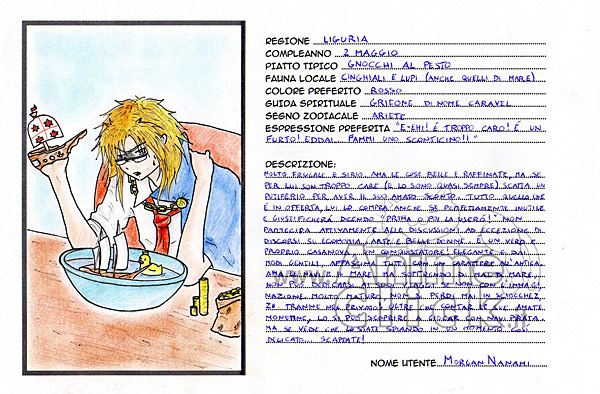 REGIONE LIGURIA
COMPLEANNO 2 MAGGIO
PIATTO TIPICO GNOCCHI AL PESTO
FAUNA LOCALE CINGHIALI E LUPI (ANCHE QUELLI DI MARE)
COLORE PREFERITO ROSSO
GUIDA SPIRITUALE GRIFONE DI NOME CARAVEL
SEGNO ZODIACALE ARIETE
ESPRESSIONE PREFERITA "E-EHI! È TROPPO CARO! È UN
FURTO! EDDAI... FAMMI UNO SCONTICINO!!"
DESCRIZIONE:
MOLTO FRUGALE E SERIO. AMA LE COSE BELLE E RAFFINATE, MA SE
PER LUI SON TROPPO CARE (E LO SONO QUASI SEMPRE) SCATTA UN
PUTIFERIO PER AVER IL SUO AMATO SCONTO. TUTTO QUELLO CHE
È IN OFFERTA, LUI LO COMPRA ANCHE SE PERFETTAMENTE INUTILE
E GIUSTIFICHERÀ DICENDO "PRIMA O POI LA USERÒ!" NON
PARTECIPA ATTIVAMENTE ALLE DISCUSSIONI AD ECCEZIONE DI
DISCORSI SU ECONOMIA, ARTE E BELLE DONNE... È UN VERO E
PROPRIO CASANOVA, UN CONQUISTATORE! ELEGANTE E DAI
MODI GENTILI, AFFASCINA TUTTI CON UN CARATTERE ALL'ANTICA.
AMA LE NAVI E IL MARE MA SOFFRENDO IL MAL DI MARE,
NON PUÒ DEDICARSI AI SUOI VIAGGI SE NON CON L'IMMAGI_
NAZIONE. MOLTO MATURO, NON SI PERDE MAI IN SCIOCCHEZ_
ZE TRANNE NEL PRIVATO: OLTRE CHE CONTAR LE SUE AMATE
MONETINE, LO SI PUÒ SCOPRIRE A GIOCAR CON NAVI PIRATA...
MA SE VEDE CHE LO STATE SPIANDO IN UN MOMENTO COSÌ
DELICATO... SCAPPATE!
NOME UTENTE MORGAN NANAMI